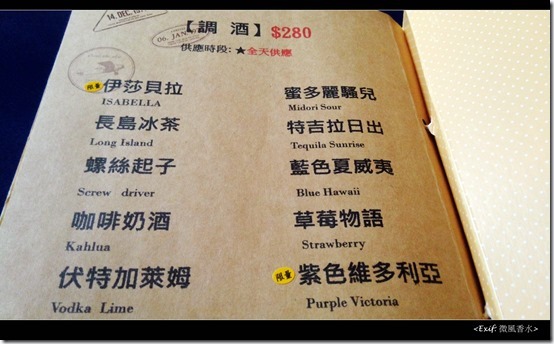 14. DEC. 19
06. JAN.
【調 酒】$280
供應時段:★全天供應
限量 伊莎貝拉
ISABELLA
長島冰茶
Long Island
螺絲起子
Screw driver
咖啡奶酒
Kahlua
伏特加萊姆
Vodka Lime
蜜多麗騷兒
Midori Sour
特吉拉日出
Tequila Sunrise
藍色夏威夷
Blue Hawaii
草莓物語
Strawberry
限量 紫色維多利亞
Purple Victoria
<Exif: 微風香水>